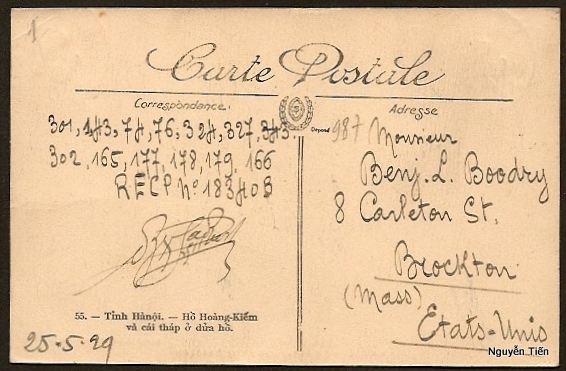 1
Carte Postale
Correspondance.
Adresse
Déposé
301, 143, 74, 76, 324, 327, 343
302, 165, 177, 178, 179, 166
RECP Nº 18340B
987 Monsieur
Benj. L. Boodry
8 Carleton St.
Brockton
(Mass)
Etats-Unis
55. — Tỉnh Hànội. — Hồ Hoàng-Kiếm
và cái tháp ở dửa hồ.
25-5-29
Nguyễn Tiến